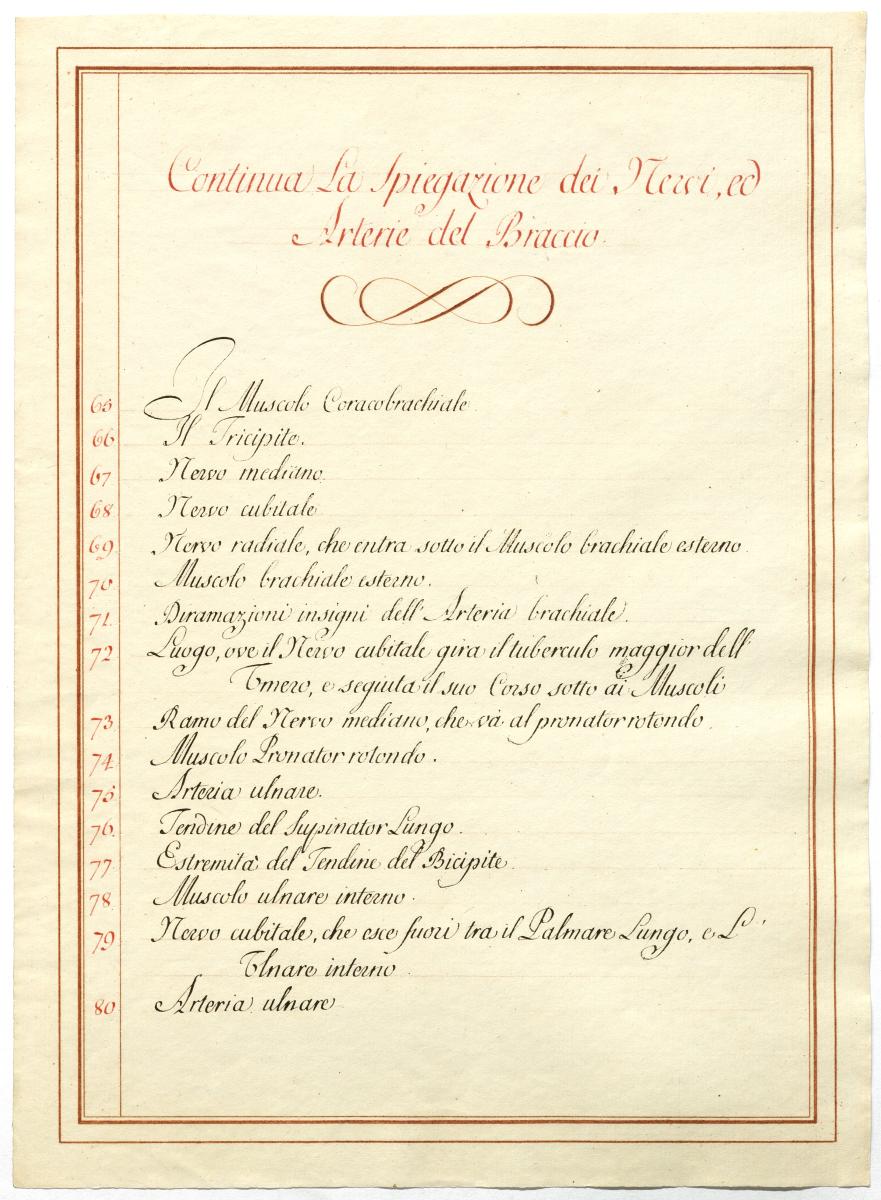 Continua La Spiegazione dei Nervi, ed
Arterie del Braccio.
65 Il Muscolo Coracobrachiale.
66 Il Tricipite.
67 Nervo mediano.
68 Nervo cubitale
69 Nervo radiale, che entra sotto il Muscolo brachiale esterno.
70 Muscolo brachiale esterno.
71. Diramazioni insigni dell' Arteria brachiale.
72 Luogo, ove il Nervo cubitale gira il tuberculo maggior dell'
Umero, e seguita il suo Corso sotto ai Muscoli
73 Ramo del Nervo mediano, che và al pronator rotondo.
74 Muscolo Pronator rotondo.
75 Arteria ulnare.
76. Tendine del Supinator Lungo.
77 Estremità del Tendine del Bicipite.
78. Muscolo ulnare interno.
79 Nervo cubitale, che esce fuori tra il Palmare Lungo, e L'
Ulnare interno.
80 Arteria ulnare